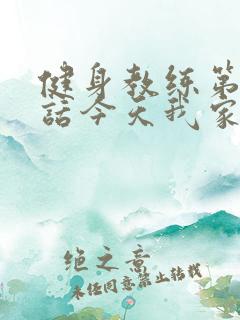 健身教练第
話今天我家
绝之意
未经同意禁止转载